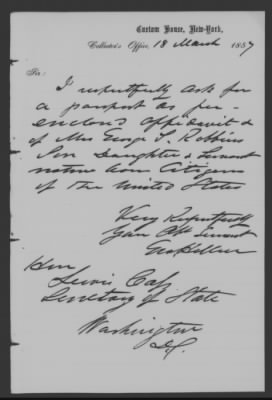 Custom House, New-York,
Collector's Office, 18 March 1857
Sir:
I respectfully ask for
a passport as per
enclosed affidavit &
of Mrs George S. Robbins
Son Daughter & Servant
native born Citizens
of the United States
Very Respectfully
Your Obt Servant
Hon
Lewis Cass
Secretary of State
Washington
D.C.